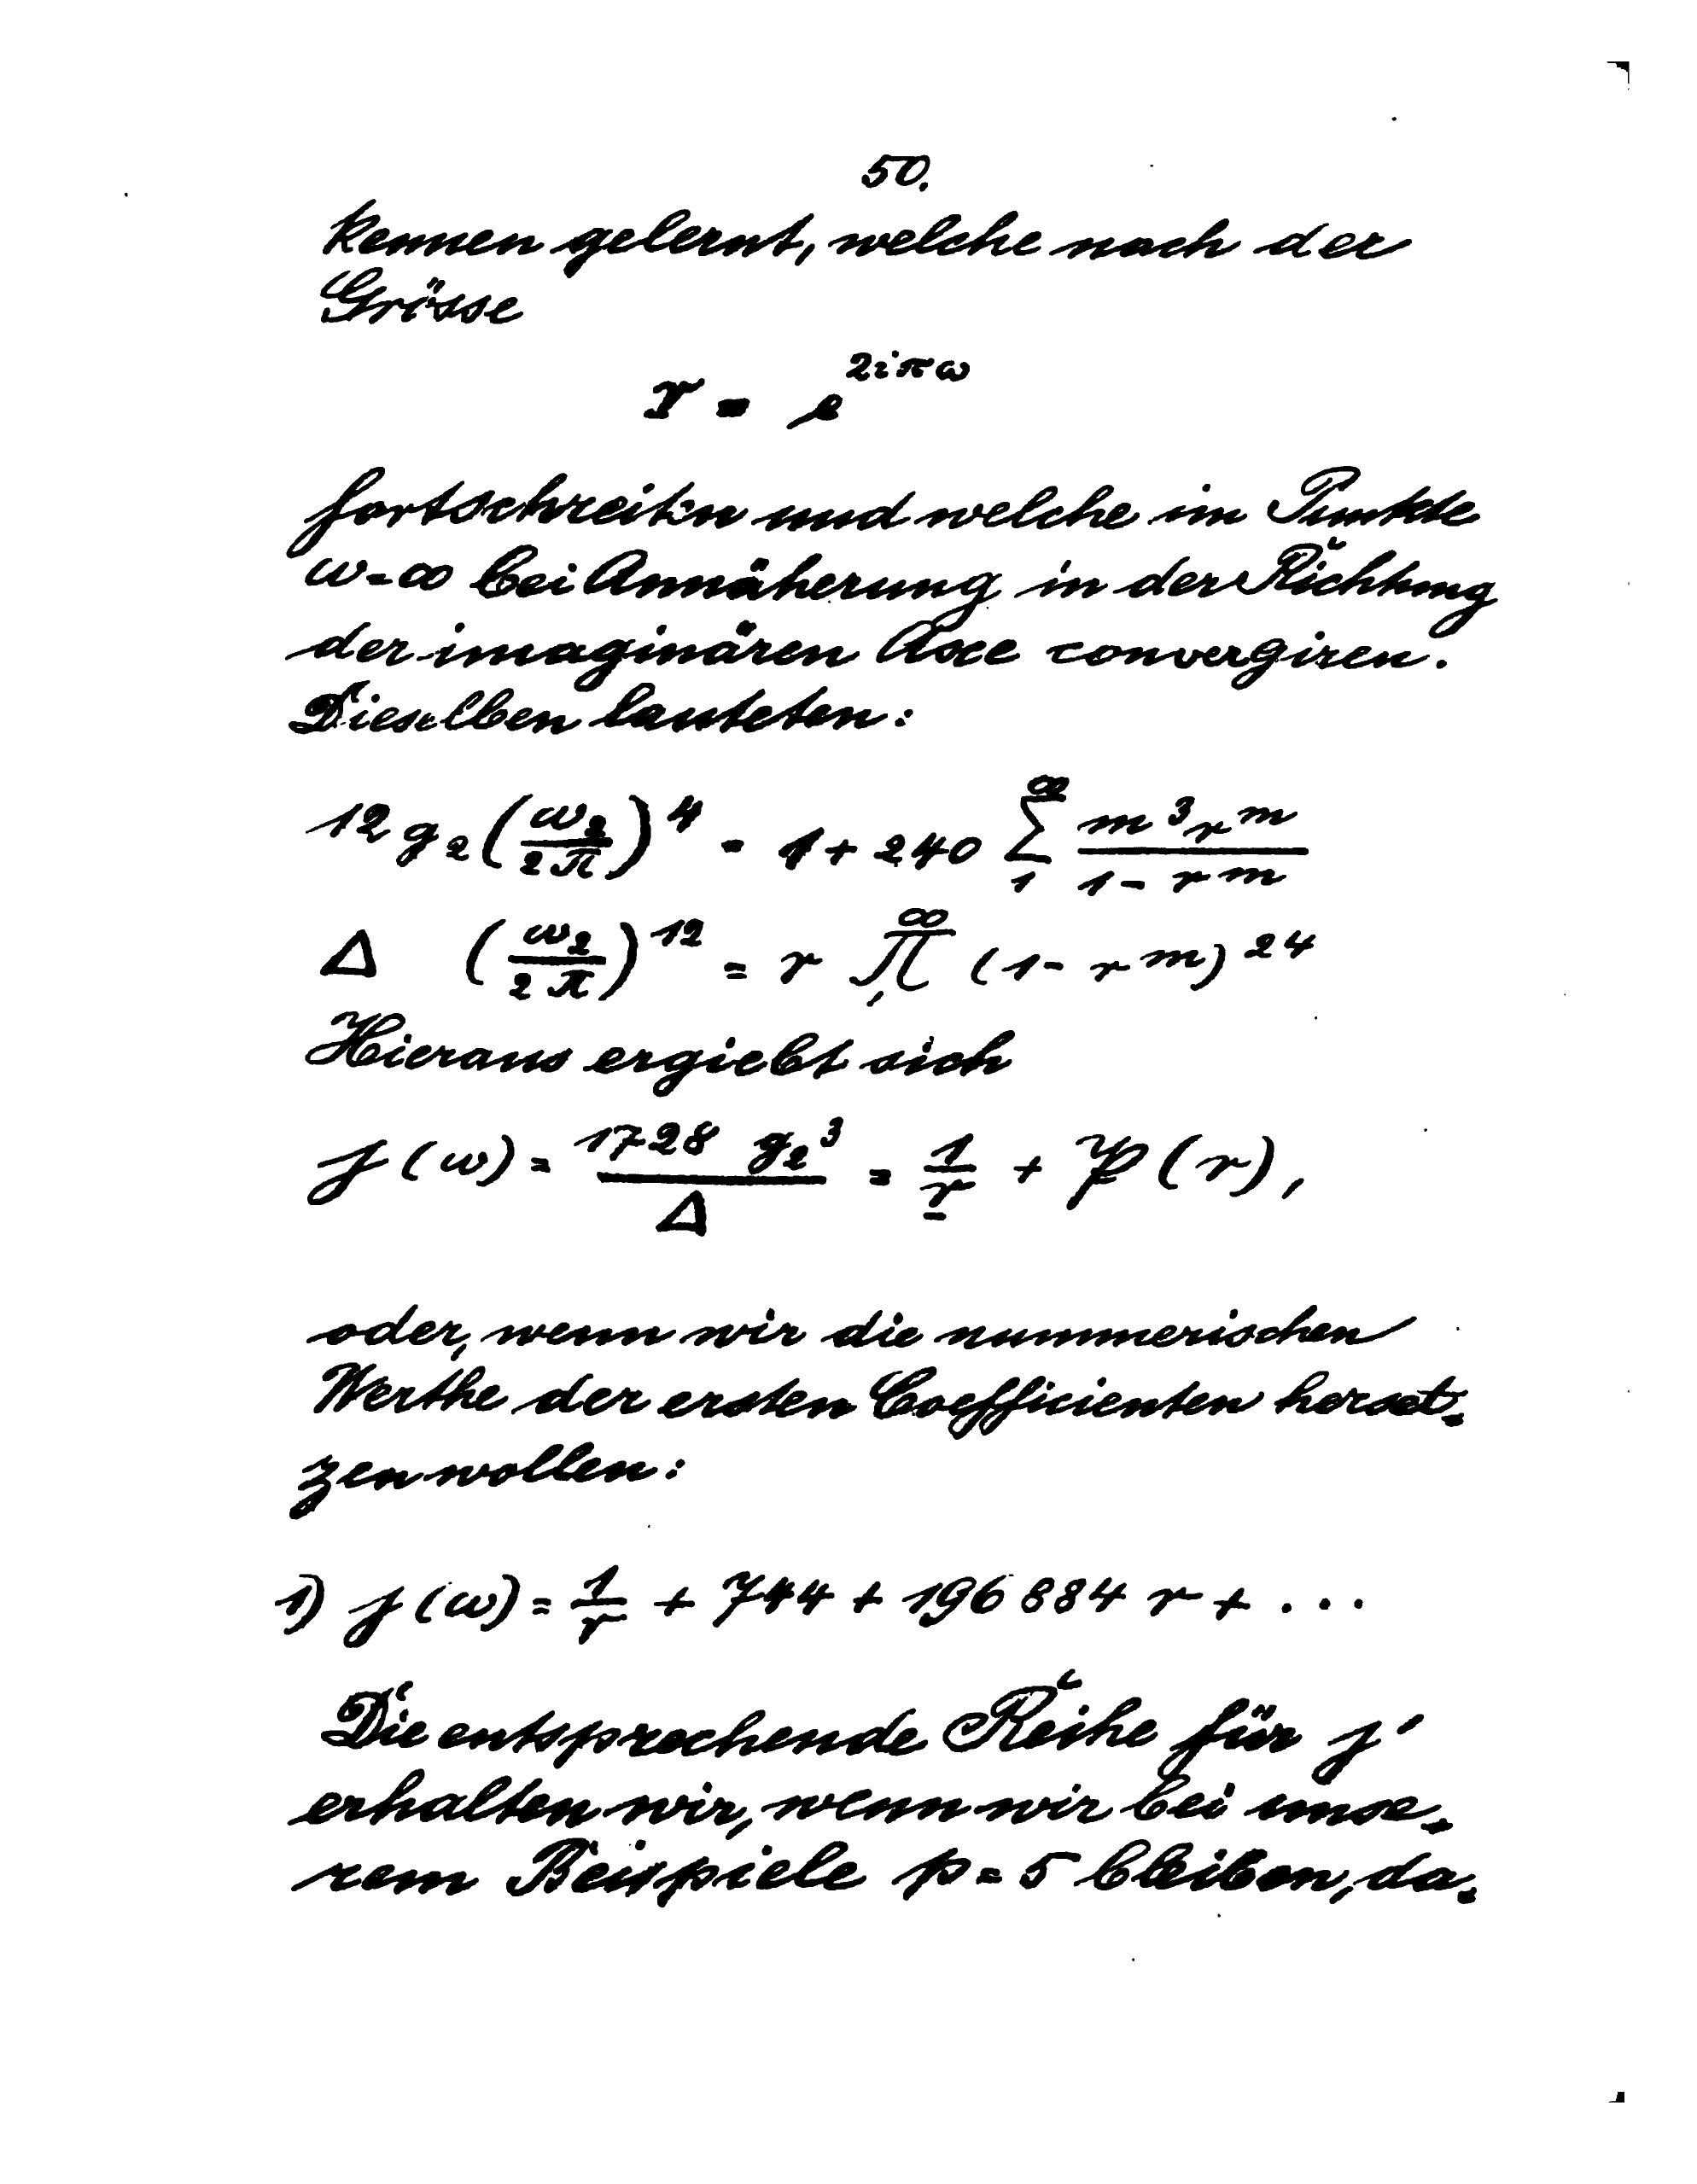 50.
kennen gelernt, welche nach der
Grösse
r = e^{2iπω}
fortschreiten und welche im Punkte
ω = ∞ bei Annäherung in der Richtung
der imaginären Axe convergiren.
Dieselben lauteten:
12 g₂ (ω₂/2π)⁴ = 1 + 240 ∑₁^∞ m³r^m / (1 - r^m)
Δ (ω₂/2π)¹² = r ∏₁^∞ (1 - r^m)²⁴
Hieraus ergiebt sich
j(ω) = 1728 g₂³ / Δ = 1/r + 𝔓(r),
oder, wenn wir die nummerischen
Werthe der ersten Coefficienten herset-
zen wollen:
1) j(ω) = 1/r + 744 + 196884 r + ...
Die entsprechende Reihe für j'
erhalten wir, wenn wir bei unse-
rem Beispiele p = 5 bleiben, da-